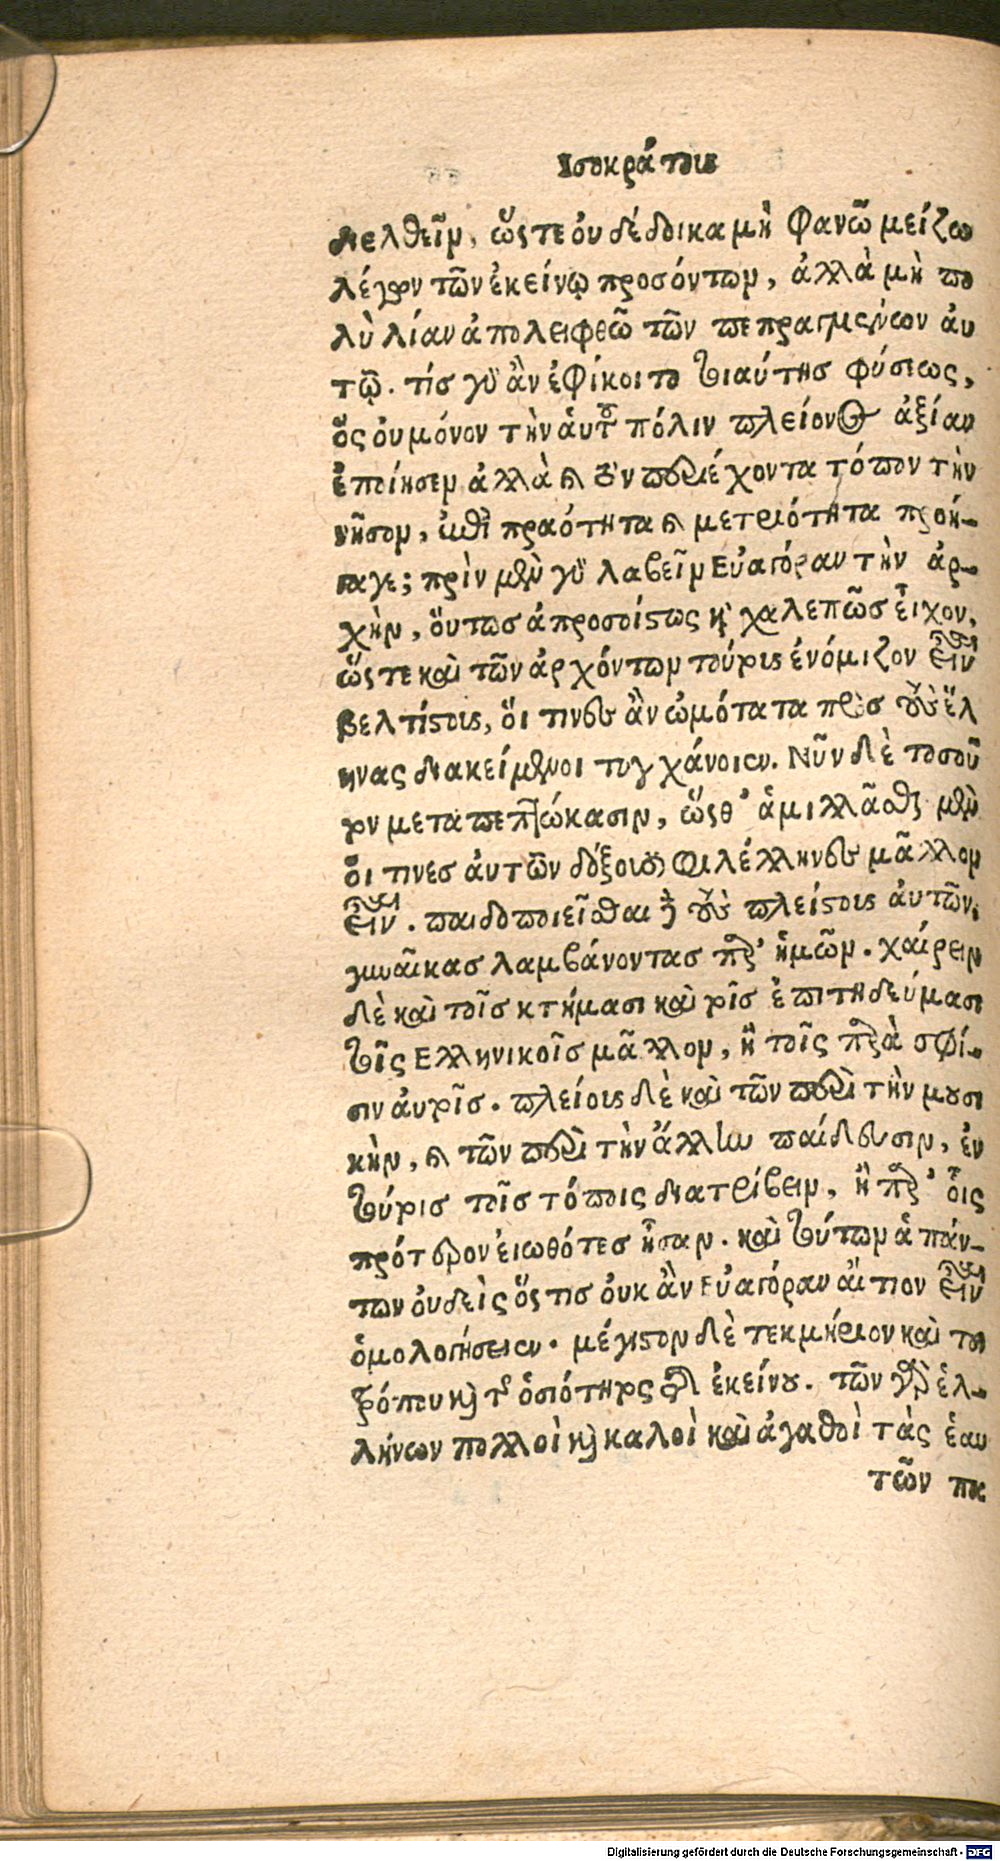 Ἰσοκράτους
διελθεῖν, ὥςτε ὀυ δέδοικα μὴ φανῶ μείζω
λέγων τῶν ἐκείνῳ προσόντων, ἀλλὰ μὴ πο
λὺ λίαν ἀπολειφθῶ τῶν πεπραγμένων ἀυ
τῷ. τίς γὰρ ἂν ἐφίκοιτο τοιαύτης φύσεως,
ὃς ὀυ μόνον τὴν ἁυτοῦ πόλιν πλείονος ἀξίαν
ἐποίησεν ἀλλὰ καὶ τὸν περιέχοντα τόπον τὴν
νῆσον, ἐπὶ πραότητα καὶ μετριότητα προή-
γαγε; πρὶν μὲν γὰρ λαβεῖν Εὐαγόραν τὴν ἀρ-
χὴν, ὅυτως ἀπροσοίστως καὶ χαλεπῶς εἶχον,
ὥςτε καὶ τῶν ἀρχόντων τούτους ἐνόμιζον εἶναι
βελτίστους, ὅι τινες ἂν ὠμότατα πρὸς τοὺς ἕλ
ηνας διακείμενοι τυγχάνοιεν. Νῦν δὲ τοσοῦ
τον μεταπεπτώκασιν, ὥςθ' ἁμιλλᾶσθαι μὲν
ὅι τινες ἀυτῶν δόξουσι φιλέλληνες μᾶλλον
εἶναι. παιδοποιεῖσθαι δὲ τοὺς πλείστους ἀυτῶν,
γυναῖκας λαμβάνοντας παρ' ἡμῶν. χαίρειν
δὲ καὶ τοῖς κτήμασι καὶ τοῖς ἐπιτηδεύμασι
τοῖς Ελληνικοῖς μᾶλλον, ἢ τοῖς παρὰ σφί-
σιν ἀυτοῖς. πλείους δὲ καὶ τῶν περὶ τὴν μουσι
κὴν, καὶ τῶν περὶ τὴν ἄλλην παίδευσιν, ἐν
τούτοις τοῖς τόποις διατρίβειν, ἢ παρ' οἷς
πρότερον ἐιωθότες ἦσαν. καὶ τούτων ἁπάν-
των ὀυδεὶς ὅςτις ὀυκ ἂν Εὐαγόραν ἄιτιον εἶναι
ὁμολογήσειεν. μέγιστον δὲ τεκμήριον καὶ τοῦ
τρόπου καὶ τῆς ὁσιότητος τῆς ἐκείνου. τῶν γὰρ ἑλ-
λήνων πολλοὶ καὶ καλοὶ καὶ ἀγαθοὶ τὰς ἑαυ
τῶν πα
Digitalisierung gefördert durch die Deutsche Forschungsgemeinschaft - DFG